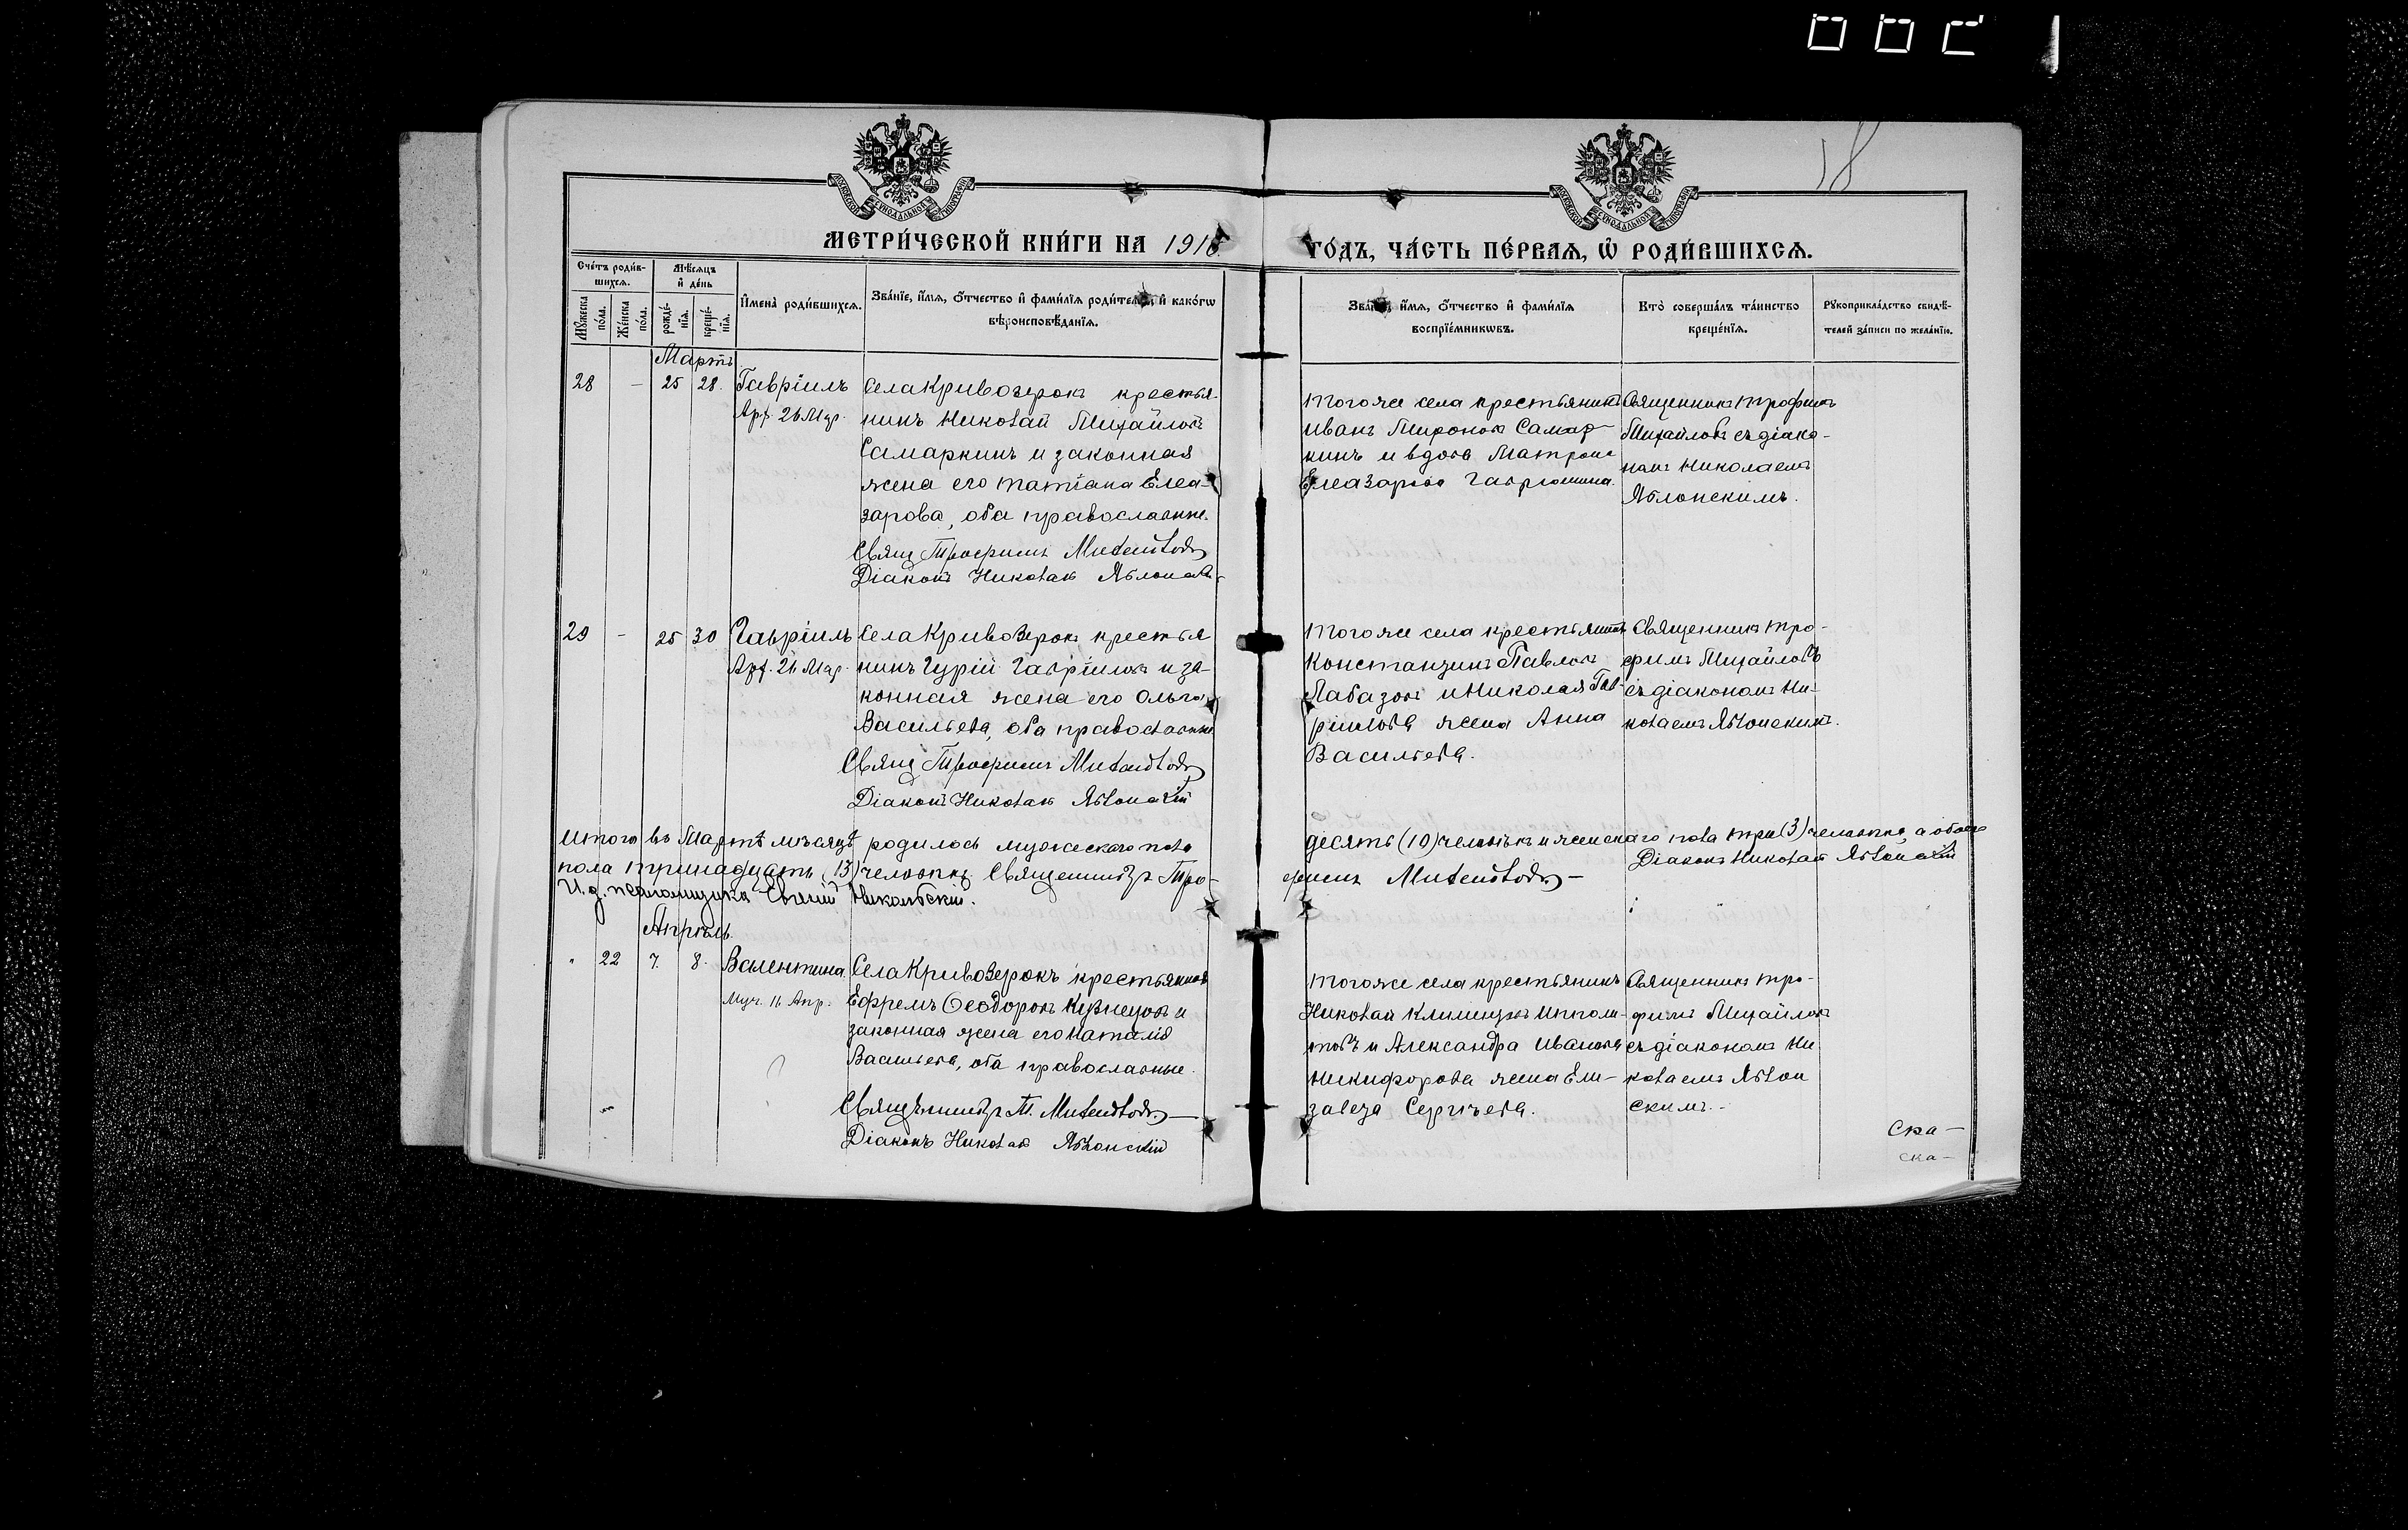 18
МЕТРИ́ЧЕСКОЙ КНИ́ГИ НА 1916
ГО́ДЪ, ЧА́СТЬ ПЕ́РВАЯ, Ѡ҆ РОДИ́ВШИХСЯ.
Сче́тъ роди́в-
шихся.
Мѣ́сяцъ
и҆ де́нь
Мꙋ́жеска
по́ла.
Же́нска
по́ла.
рожде́-
нїя.
креще́-
нїя.
И҆мена̀ роди́вшихся.
Зва́нїе, и҆́мя, ѻ҆́тчество и҆ фами́лїя роди́телей, и҆ како́гѡ
вѣроисповѣ́данїя.
Зва́нїе, и҆́мя, ѻ҆́тчество и҆ фами́лїя
воспрїе́мникѡвъ.
Кто̀ соверша́лъ та́инство
креще́нїя.
Рꙋкоприкла́дство свидѣ́-
телей за́писи по жела́нїю.
Мартъ
28 - 25 28. Гавріилъ
Арх. 26 Мар.
Села Кривозерокъ крестья-
нинъ Николай Михайловъ
Самаркинъ и законная
жена его Татіана Елеа-
зарова, оба православные.
Свящ Трофимъ Михайловъ
Діаконъ Николай
Того же села крестьянинъ
Иванъ Мироновъ Самар-
кинъ и вдова Матрона
Елеазарова Гаврюшина.
Священникъ Трофимъ
Михайловъ съ діако-
номъ Николаемъ
Яблонскимъ.
29 - 25 30 Гавріилъ
Арх. 26 Мар.
Села Кривозерокъ крестья
нинъ Гурій Гавріиловъ и за-
конная жена его Ольга
Васильева, оба православные
Свящ Трофимъ Михайловъ
Діаконъ Николай Яблонскій
Того же села крестьянинъ
Константинъ Павловъ
Лабазовъ и Николая Гав-
ріилова жена Анна
Васильева.
Священникъ Тро-
фимъ Михайловъ
съ діакономъ Ни-
колаемъ Яблонскимъ.
Итого въ Мартѣ мѣсяцѣ родилось мужескаго пола
десять (10) человѣкъ и женскаго пола три (3) человѣка, а обоего
пола тринадцать (13) человѣкъ. Священникъ Тро-
фимъ Михайловъ -
Діаконъ Николай Яблонскій
И. д. псаломщика Евгеній Никольскій.
Апрѣль.
" 22 7. 8. Валентина.
Муч. 16 Апр.
Села Кривозерокъ крестьянинъ
Ефремъ Ѳеодоровъ Кузнецовъ и
законная жена его Наталія
Васильева, оба православные.
Священникъ Т. Михайловъ
Діаконъ Николай Яблонскій
Того же села крестьянинъ
Николай Ипполи-
товъ и Александра Иванова
Никифорова жена Ели-
завета Сергѣева.
Священникъ Тро-
фимъ Михайловъ
съ діакономъ Ни
колаемъ Яблон
скимъ.
Ска-
ска-